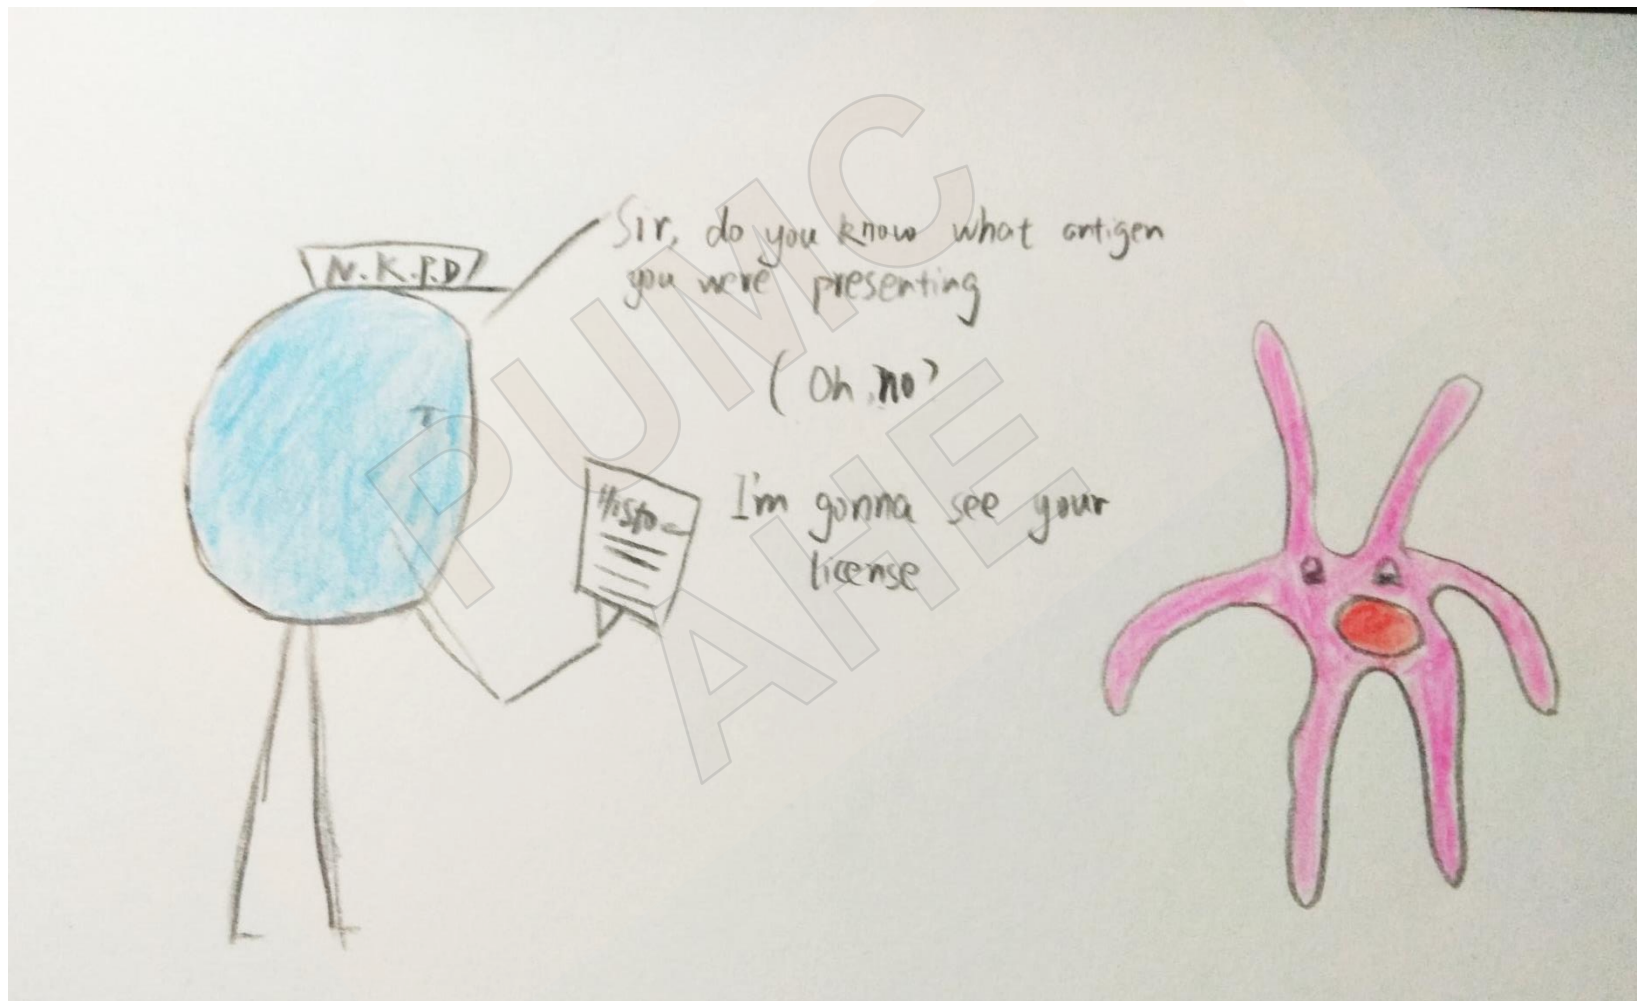 N.K.P.D
Sir, do you know what antigen
you were presenting
(Oh, no)
Histo
I'm gonna see your
license
PUMC
AHE